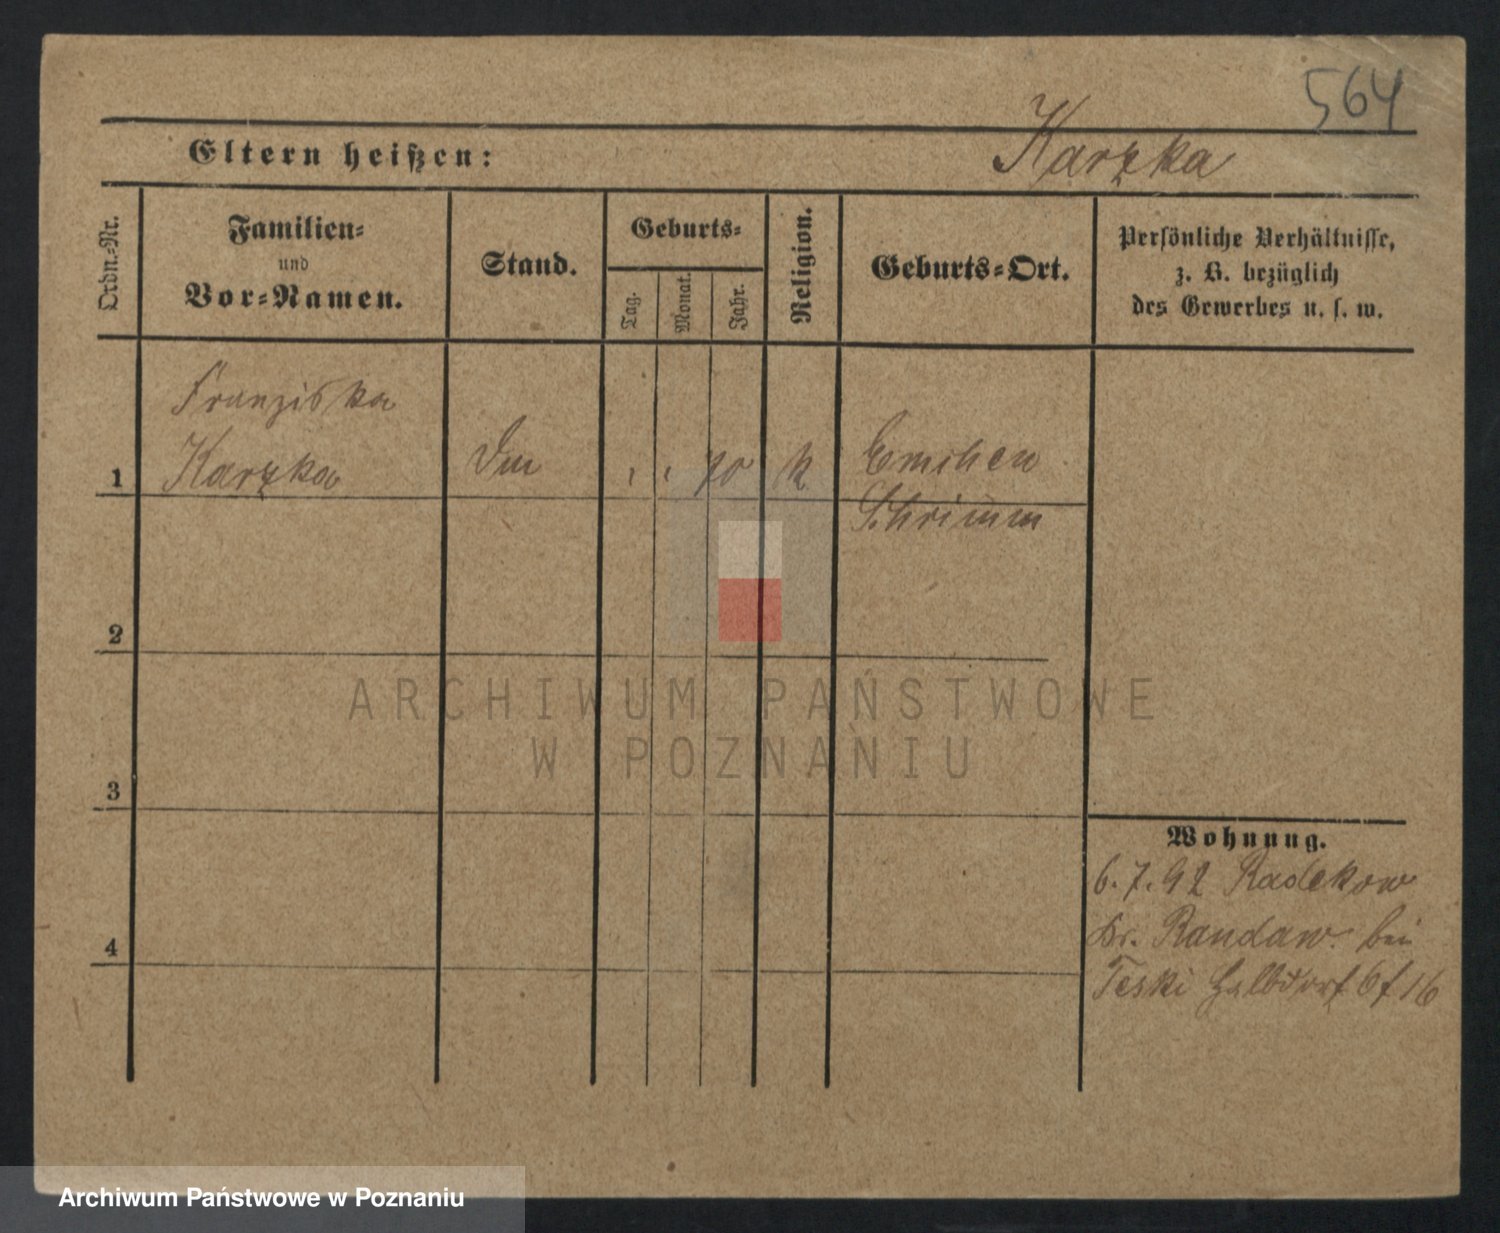 564
Karzka
Eltern heißen:
Ordn.-Nr.
Familien-
und
Vor-Namen.
Stand.
Geburts-
Tag.
Monat.
Jahr.
Religion.
Geburts-Ort.
Persönliche Verhältnisse,
z. B. bezüglich
des Gewerbes u. s. w.
Franziska
1 Karzka 70 k
Schrimm
2
3
4
Wohnung.
6.7.92 Radekow
Kr. Randow bei
Teski Halbdorf
ARCHIWUM PAŃSTWOWE
W POZNANIU
Archiwum Państwowe w Poznaniu